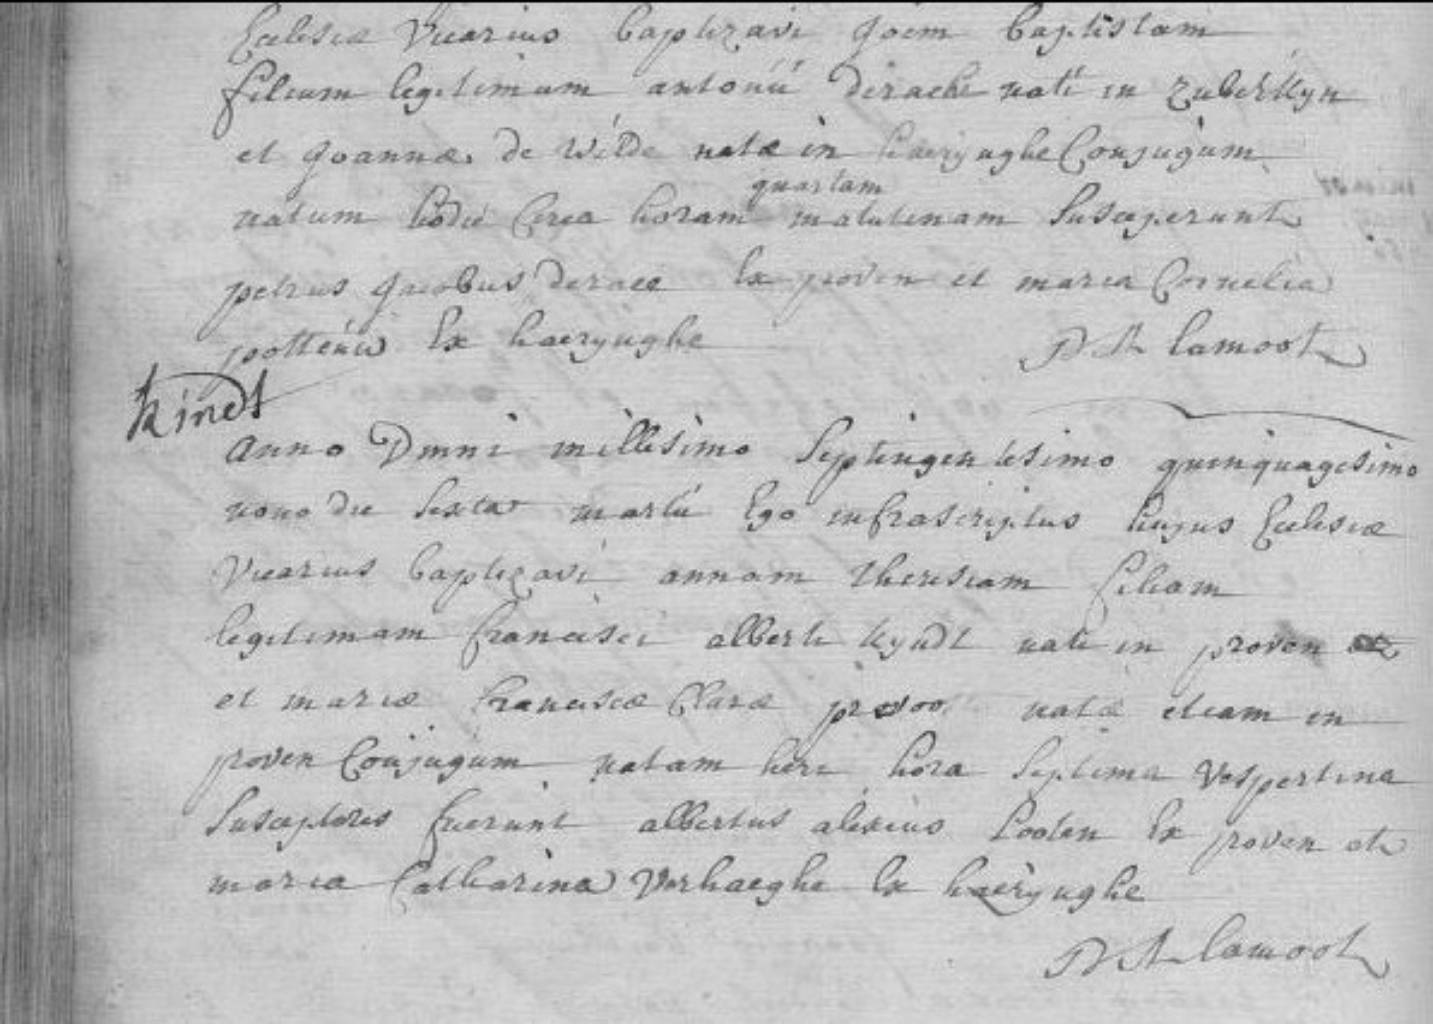 Ecclesiæ Vicarius baptizavi Joem baptistam
filium legitimum antonii derache nati in Zuberkyn
et Joannæ de Wilde natæ in haeryughe Conjugum
quartam
natum hodie Circa horam matutinam Susceperunt
petrus Jacobus derace Ex proven et maria Cornelia
Ex haeryughe
D A lamoot
kindt
anno Dmni millesimo Septingentesimo quinquagesimo
nono die Sexta martii Ego infrascriptus hujus Ecclesiæ
Vicarius baptizavi annam theresiam filiam
legitimam francisci alberti kyndt nati in proven
et mariæ franciscæ Claræ provoo natæ etiam in
proven Conjugum natam heri hora Septima Vespertina
Susceptores fuerunt albertus alexius looten Ex proven et
maria Catharina Verhaeghe Ex haeryughe
D A lamoot